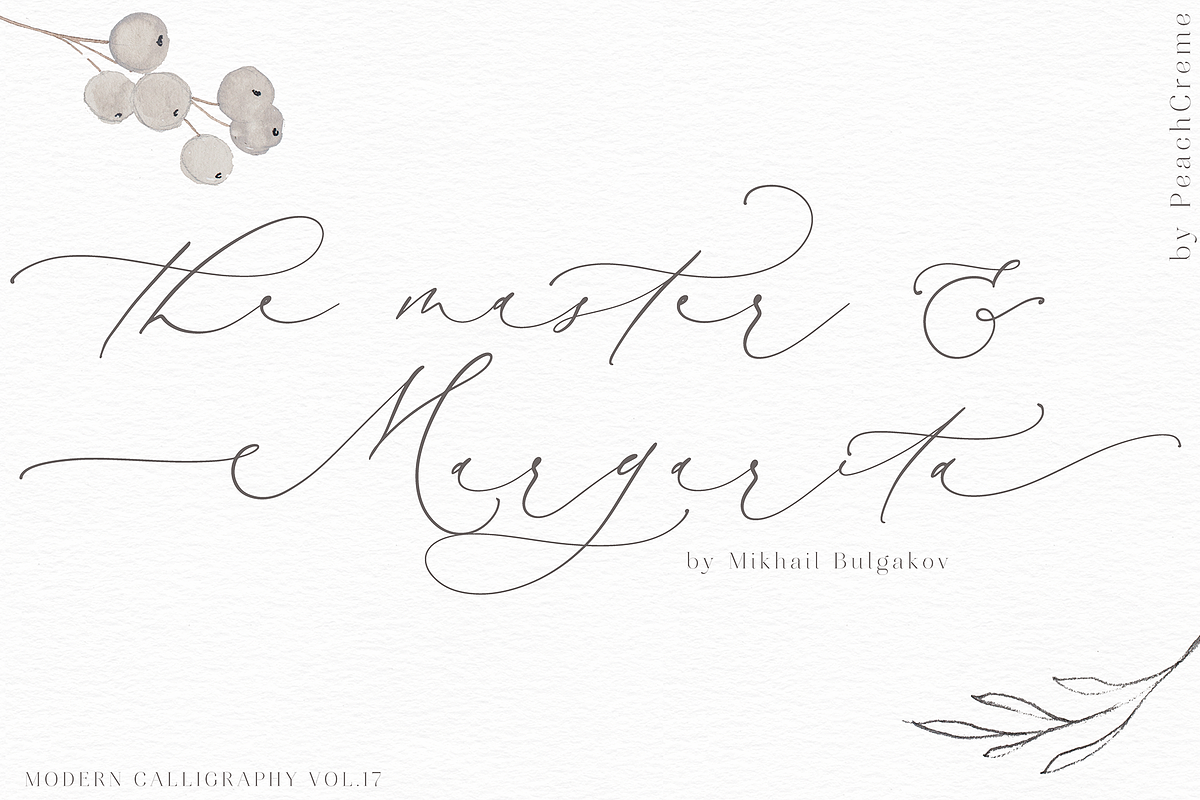 by PeachCreme
The master &
Margarita
by Mikhail Bulgakov
MODERN CALLIGRAPHY VOL.17